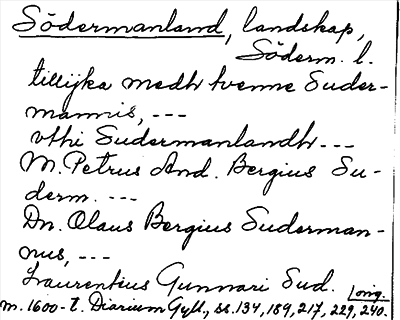 Södermanland, landskap,
Söderm. l.
tillijka medh tvenne Suder-
mannis, ---
vthi Sudermanlandh ---
M. Petrus And. Bergius Su-
derm. ---
Dn. Olaus Bergius Suderman-
nus, ---
Laurentius Gunnari Sud.
Orig.
m. 1600-t. Diarium Gyll., ss. 134, 189, 217, 229, 240.